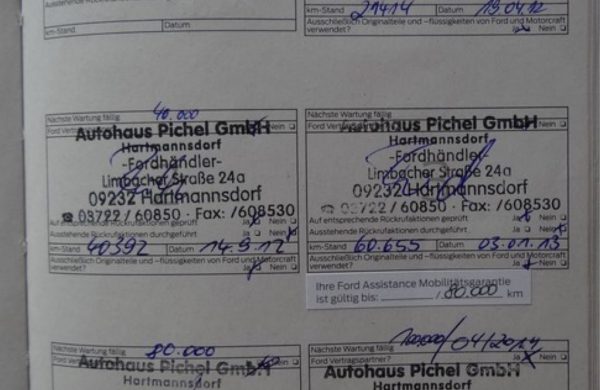 Ausstehende
Datum
km-Stand 21414 Datum 19.04.12
Ausschließlich Originalteile und -flüssigkeiten von Ford und Motorcraft
verwendet? Ja Nein
Nächste Wartung fällig 40.000
Ford Nein
Autohaus Pichel GmbH
Hartmannsdorf
-Fordhändler-
Limbacher Straße 24a
09232 Hartmannsdorf
☎ 03722 / 60850 · Fax: /608530
Auf entsprechende Rückrufaktionen geprüft Ja Nein
Ausstehende Rückrufaktionen durchgeführt Ja Nein
km-Stand 40392 Datum 14.9.12
Ausschließlich Originalteile und -flüssigkeiten von Ford und Motorcraft
verwendet? Ja Nein
Nächste Wartung fällig
Ford Nein
Autohaus Pichel GmbH
Hartmannsdorf
-Fordhändler-
Limbacher Straße 24a
09232 Hartmannsdorf
☎ 03722 / 60850 · Fax: /608530
Auf entsprechende Rückrufaktionen geprüft Ja Nein
Ausstehende Rückrufaktionen durchgeführt? Ja Nein
km-Stand 60.655 Datum 03.01.13
Ausschließlich Originalteile und -flüssigkeiten von Ford und Motorcraft
verwendet? Ja Nein
Ihre Ford Assistance Mobilitätsgarantie
ist gültig bis: / 80.000 km
Nächste Wartung fällig 80.000
Ford Vertragspartner? Nein
Autohaus Pichel GmbH
Hartmannsdorf
Nächste Wartung fällig 100.000/04/2014
Ford Vertragspartner? Ja Nein
Autohaus Pichel GmbH
Hartmannsdorf